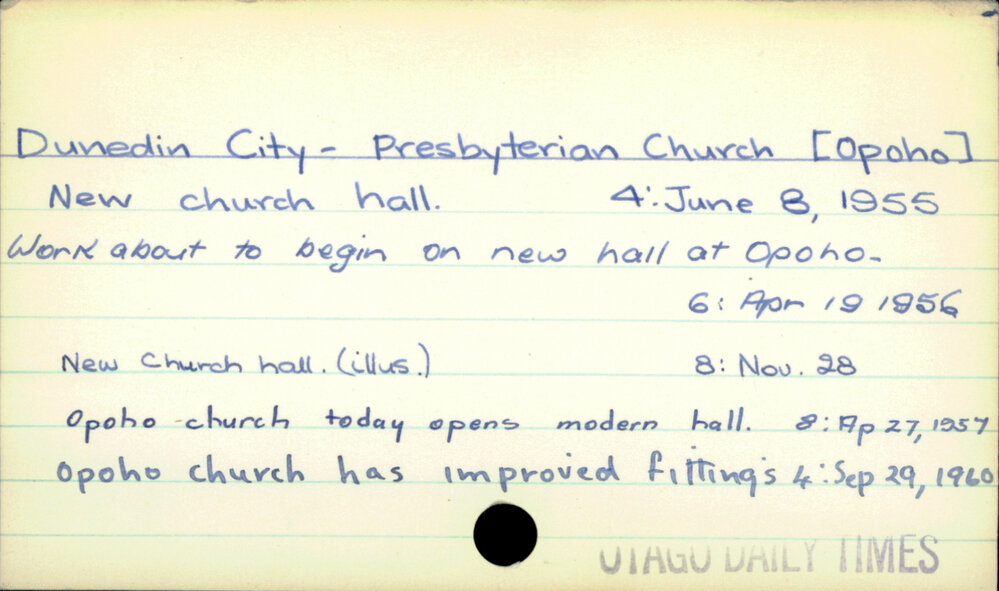 Dunedin City - Presbyterian Church [Opoho]
New church hall. 4: June 8, 1955
Work about to begin on new hall at Opoho.
6: Apr 19 1956
New Church hall. (illus.) 8: Nov. 28
Opoho church today opens modern hall. 8: Ap 27, 1957
Opoho church has improved fittings 4: Sep 29, 1960
OTAGO DAILY TIMES